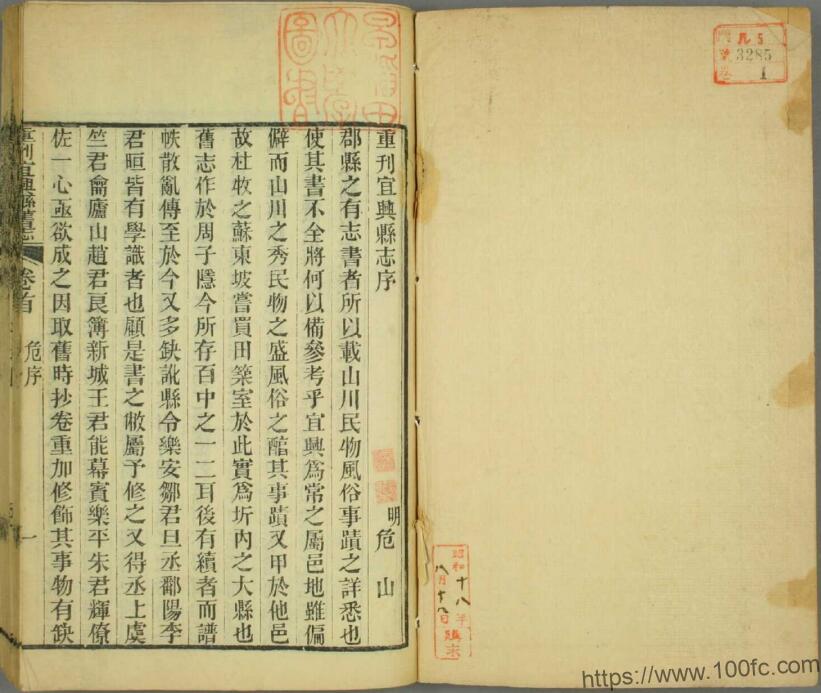 重刊宜興縣志序
明 危山
郡縣之有志書者所以載山川民物風俗事蹟之詳悉也
使其書不全將何以備參考乎宜興為常之屬邑地雖偏
僻而山川之秀民物之盛風俗之醇其事蹟又甲於他邑
故杜牧之蘇東坡嘗買田築室於此實為圻內之大縣也
舊志作於周子隱今所存百中之一二耳後有續者而譜
帙散亂傳至於今又多缺訛縣令樂安鄒君旦丞鄱陽李
君晅皆有學識者也顧是書之敝屬予修之又得丞上虞
竺君侖廬山趙君㫰簿新城王君能幕賓樂平朱君輝僚
佐一心亟欲成之因取舊時抄卷重加修飾其事物有缺
重刊宜興縣舊志
卷首
危序
一
3285
1
昭和十八年
八月十八日購求
https://www.100fc.com